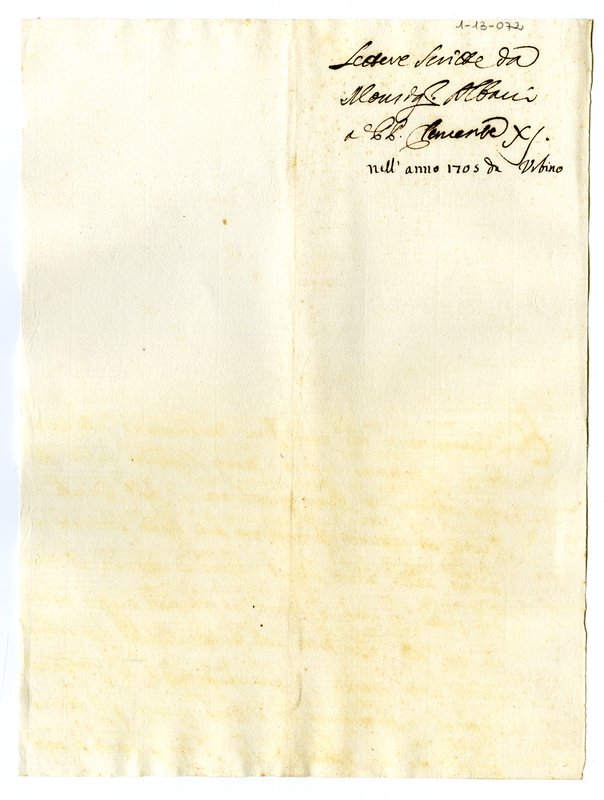 1-13-072
Lettere scritte da
Monsig.r Albani
a Clemente XI.
nell' anno 1705 da Urbino